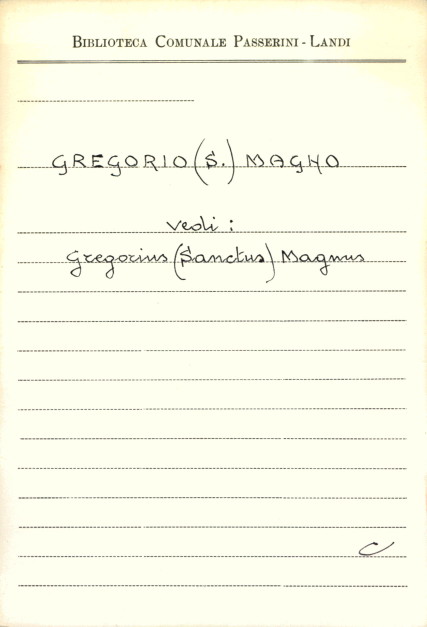 BIBLIOTECA COMUNALE PASSERINI - LANDI
GREGORIO (S.) MAGNO
vedi :
Gregorius (Sanctus) Magnus
C